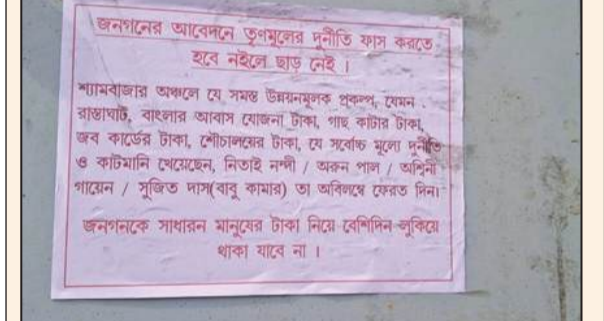 জনগনের আবেদনে তৃণমূলের দুর্নীতি ফাস করতে
হবে নইলে ছাড় নেই ।
শ্যামবাজার অঞ্চলে যে সমস্ত উন্নয়নমূলক প্রকল্প, যেমন .
রাস্তাঘাট, বাংলার আবাস যোজনা টাকা, গাছ কাটার টাকা,
জব কার্ডের টাকা, শৌচালয়ের টাকা, যে সর্বোচ্চ মূল্যে দুর্নীতি
ও কাটমানি খেয়েছেন, নিতাই নন্দী / অরুন পাল / অশ্বিনী
গায়েন / সুজিত দাস(বাবু কামার) তা অবিলম্বে ফেরত দিন।
জনগনকে সাধারন মানুষের টাকা নিয়ে বেশিদিন লুকিয়ে
থাকা যাবে না ।